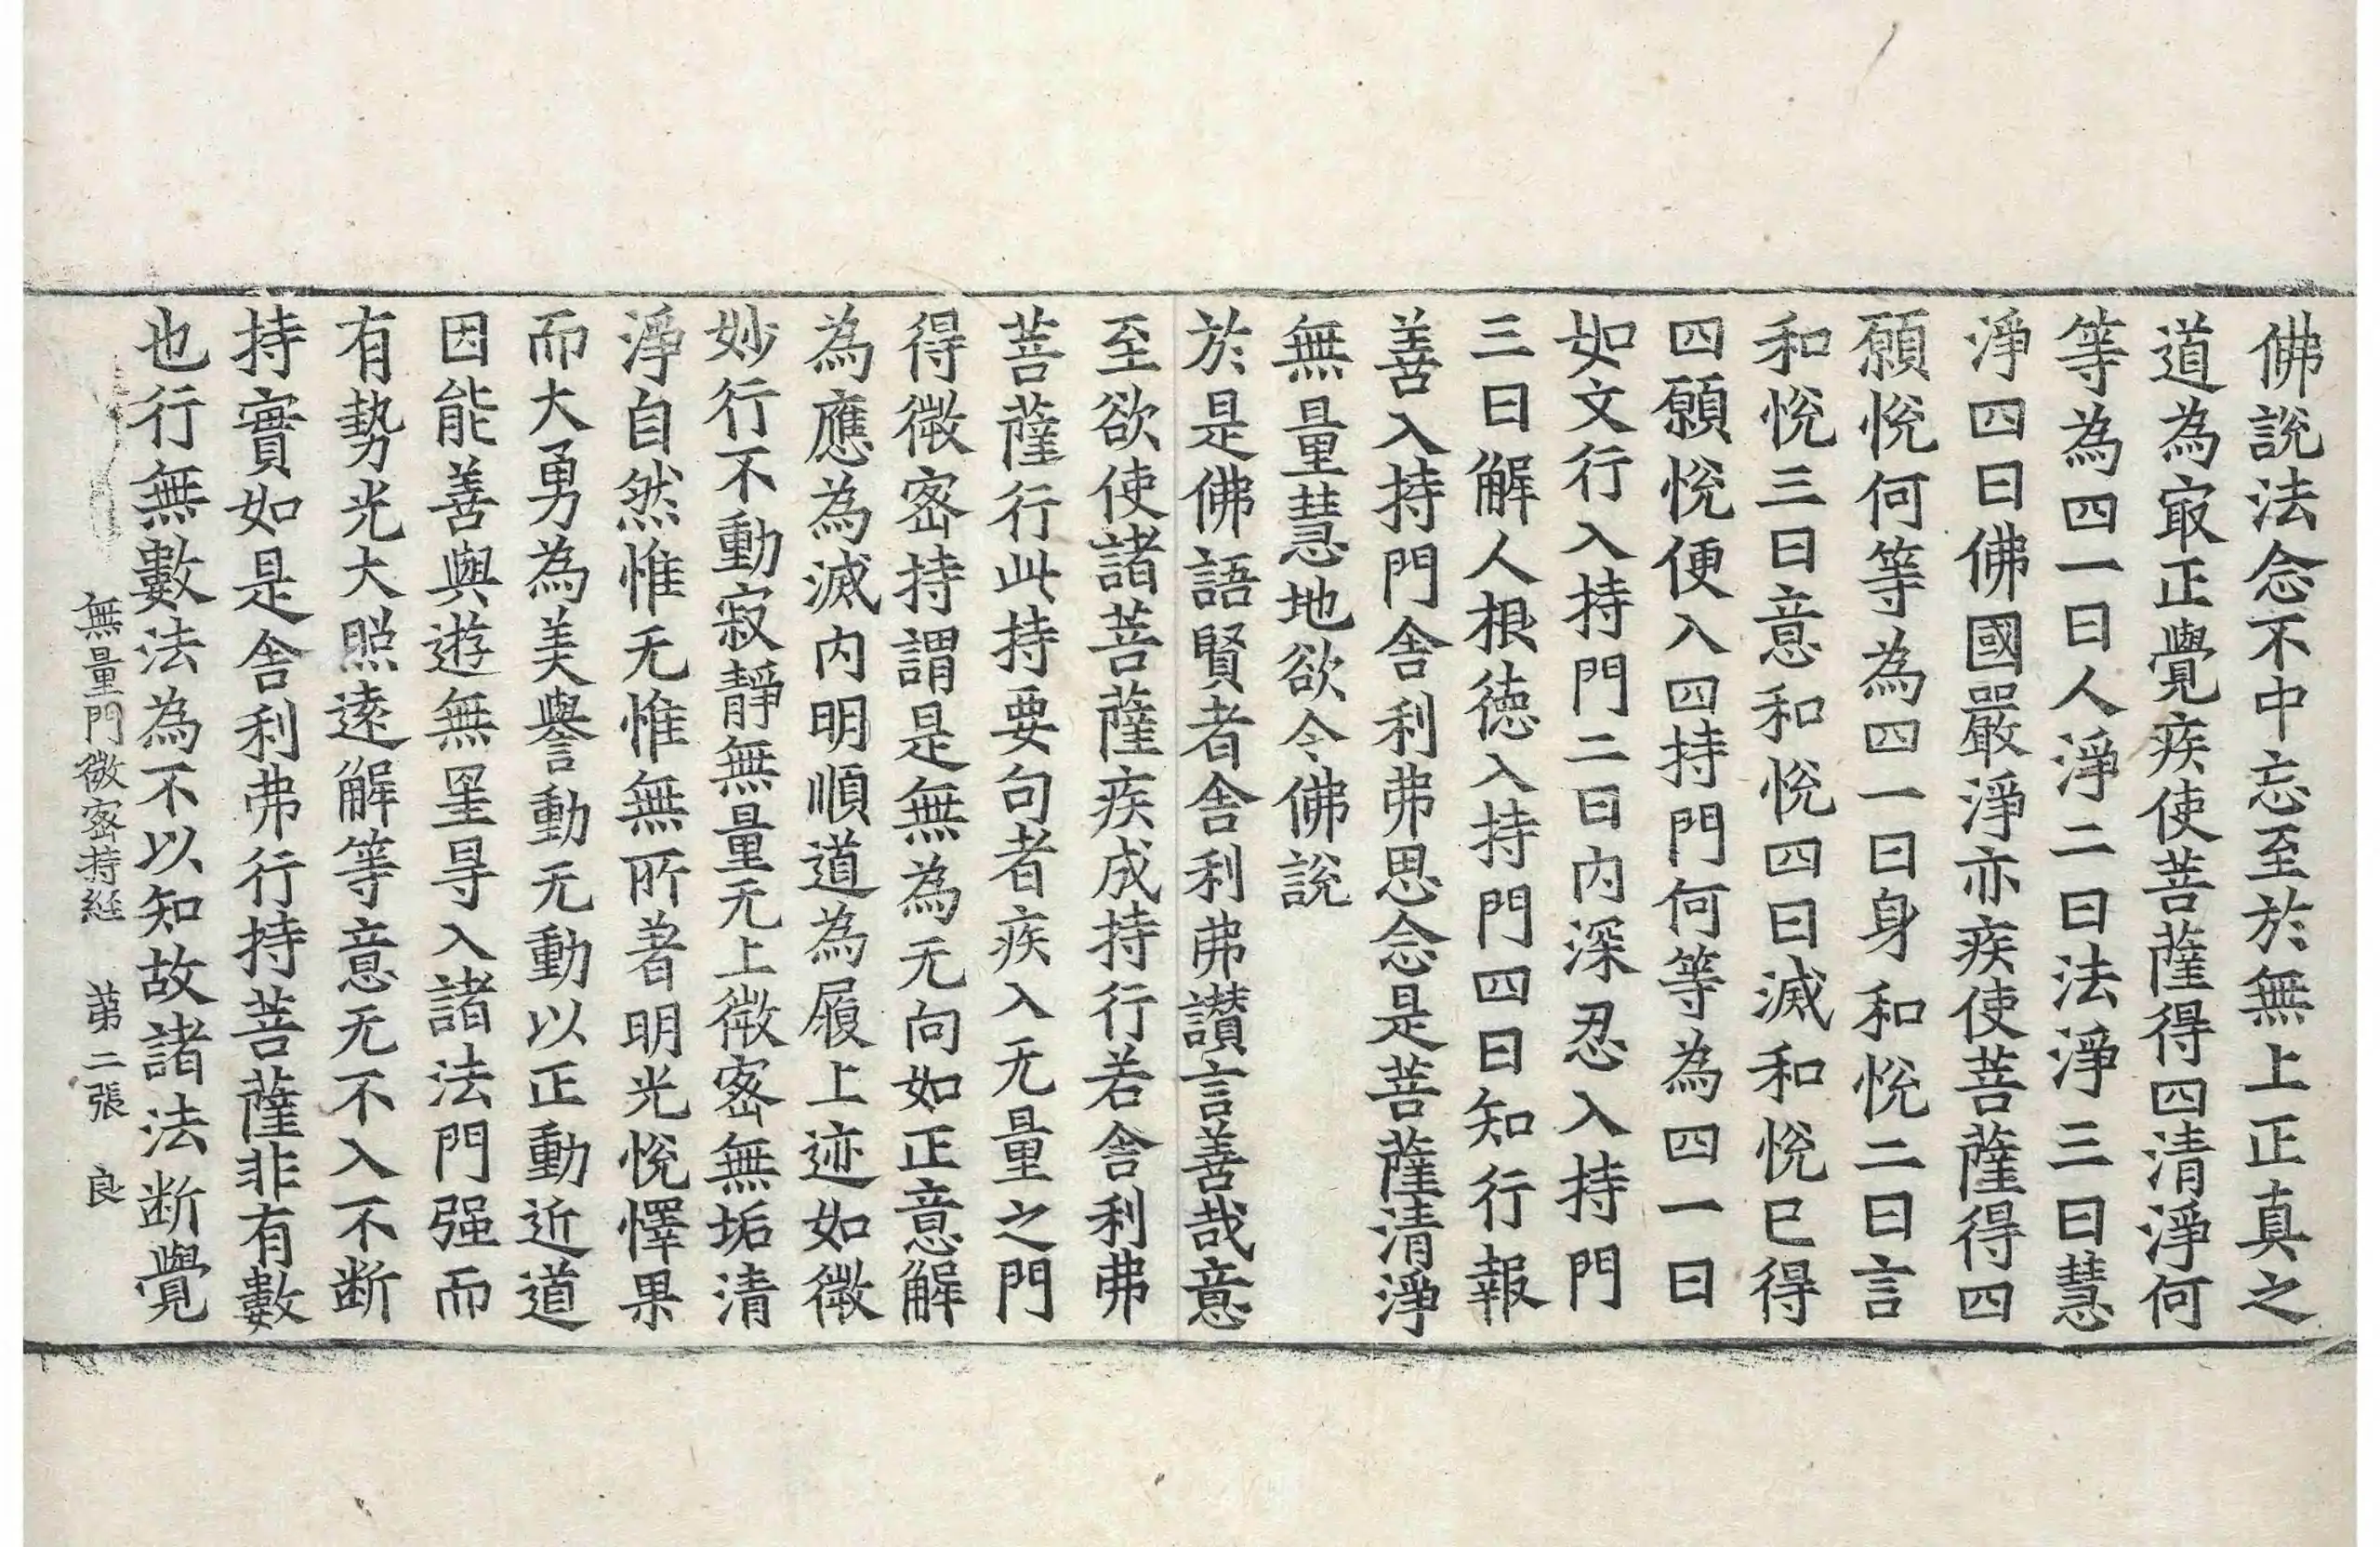 佛說法念不中忘至於無上正真之
道為㝡正覺疾使菩薩得四清淨何
等為四一曰人淨二曰法淨三曰慧
淨四曰佛國嚴淨亦疾使菩薩得四
願悅何等為四一曰身和悅二曰言
和悅三曰意和悅四曰滅和悅已得
四願悅便入四持門何等為四一曰
如文行入持門二曰内深忍入持門
三曰解人根德入持門四曰知行報
善入持門舍利弗思念是菩薩清淨
無量慧地欲令佛說
於是佛語賢者舍利弗讃言善哉意
至欲使諸菩薩疾成持行若舍利弗
菩薩行此持要句者疾入无量之門
得微密持謂是無為无向如正意解
為應為滅内明順道為履上迹如微
妙行不動寂靜無量无上微密無垢清
淨自然惟无惟無所著明光悅懌果
而大勇為美譽動无動以正動近道
因能善與遊無罣㝵入諸法門强而
有勢光大照遠解等意无不入不断
持實如是舍利弗行持菩薩非有數
也行無數法為不以知故諸法断覺
無量門微密持経　苐二張　良